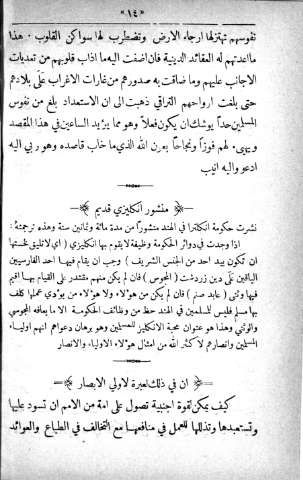 «١٤»
نفوسهم تهتزلها ارجاء الارض وتضطرب لها سواكن القلوب . هذا
ما اعدته لهم العقائد الدينية فان اضفت اليه ما اذاب قلوبهم من تعديات
الاجانب عليهم وما ضاقت به صدورهم من غارات الاغراب على بلادهم
حتى بلغت ارواحهم التراقي ذهبت الى ان الاستعداد بلغ من نفوس
المسلمين حداً يوشك ان يكون فعلاً وهو مما يؤيد الساعين في هذا المقصد
ويهيء لهم فوزاً ونجاحاً بعون الله الذي ما خاب قاصده وهو ربي اليه
ادعو واليه انيب
﴿ منشور انكليزي قديم ﴾
نشرت حكومة انكلترا في الهند منشوراً من مدة مائة وثمانين سنة وهذه ترجمته :
اذا وجدت في دوائر الحكومة وظيفة لا يقوم بها انكليزي ( اي لا تليق لخستها
ان تكون بيد احد من الجنس الشريف ) وجب ان يقام فيها احد الفارسيين
الباقين على دين زردشت ( المجوس ) فان لم يكن منهم مقتدر على القيام بها اقيم
فيها وثني ( عابد صنم ) فان لم يكن من هؤلاء ولا هؤلاء من يؤدي عملها كلف
بها مسلم فليس للمسلمين في الهند حظ من وظائف الحكومة الا ما يعافه المجوسي
والوثني وهذا هو عنوان محبة الانكليز للمسلمين وهو برهان دعواهم انهم اولياء
المسلمين وانصارهم لا كثر الله من امثال هؤلاء الاولياء والانصار
﴿ ان في ذلك لعبرة لاولي الابصار ﴾
كيف يمكن لقوة اجنبية تصول على امة من الامم ان تسود عليها
وتستعبدها وتذللها للعمل في منافعها مع التخالف في الطباع والعوائد